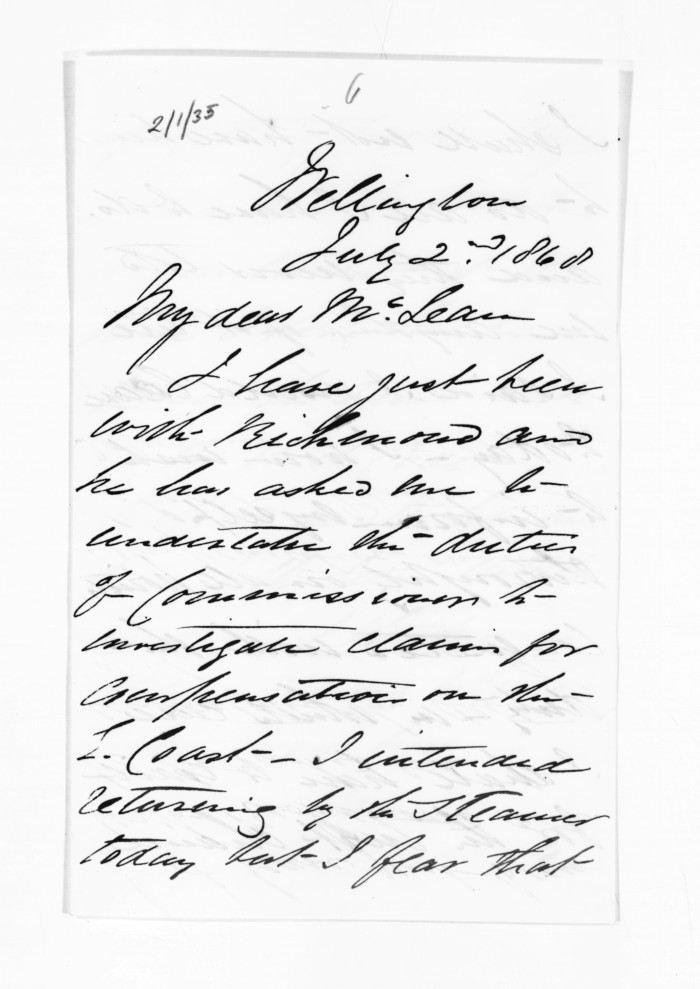 6
2/1/35
Wellington
July 2nd. 1868
My dear McLean
I have just been
with Richmond and
he has asked me to
undertake the duties
of Commissioner to
investigate claims for
compensation on the
E. Coast - I intended
returning by the Steamer
today but I fear that